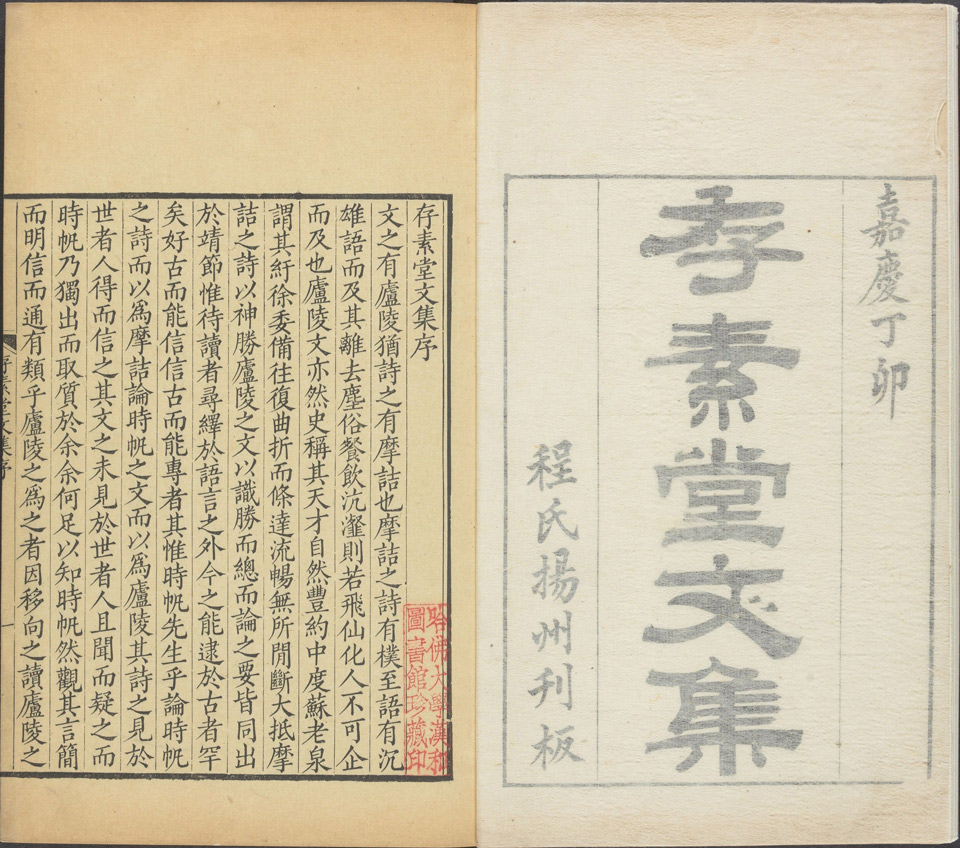 嘉慶丁卯
存素堂文集
程氏揚州刊板
存素堂文集序
文之有廬陵猶詩之有摩詰也摩詰之詩有樸至語有沉
雄語而及其離去塵俗餐飲沆瀣則若飛仙化人不可企
而及也廬陵文亦然史稱其天才自然豐約中度蘇老泉
謂其紆徐委備往復曲折而條達流暢無所閒斷大抵摩
詰之詩以神勝廬陵之文以識勝而總而論之要皆同出
於靖節惟待讀者尋繹於語言之外今之能逮於古者罕
矣好古而能信信古而能專者其惟時帆先生乎論時帆
之詩而以爲摩詰論時帆之文而以爲廬陵其詩之見於
世者人得而信之其文之未見於世者人且聞而疑之而
時帆乃獨出而取質於余余何足以知時帆然觀其言簡
而明信而通有類乎廬陵之爲之者因移向之讀廬陵之
存素堂文集序
一
哈佛大學漢和
圖書館珍藏印